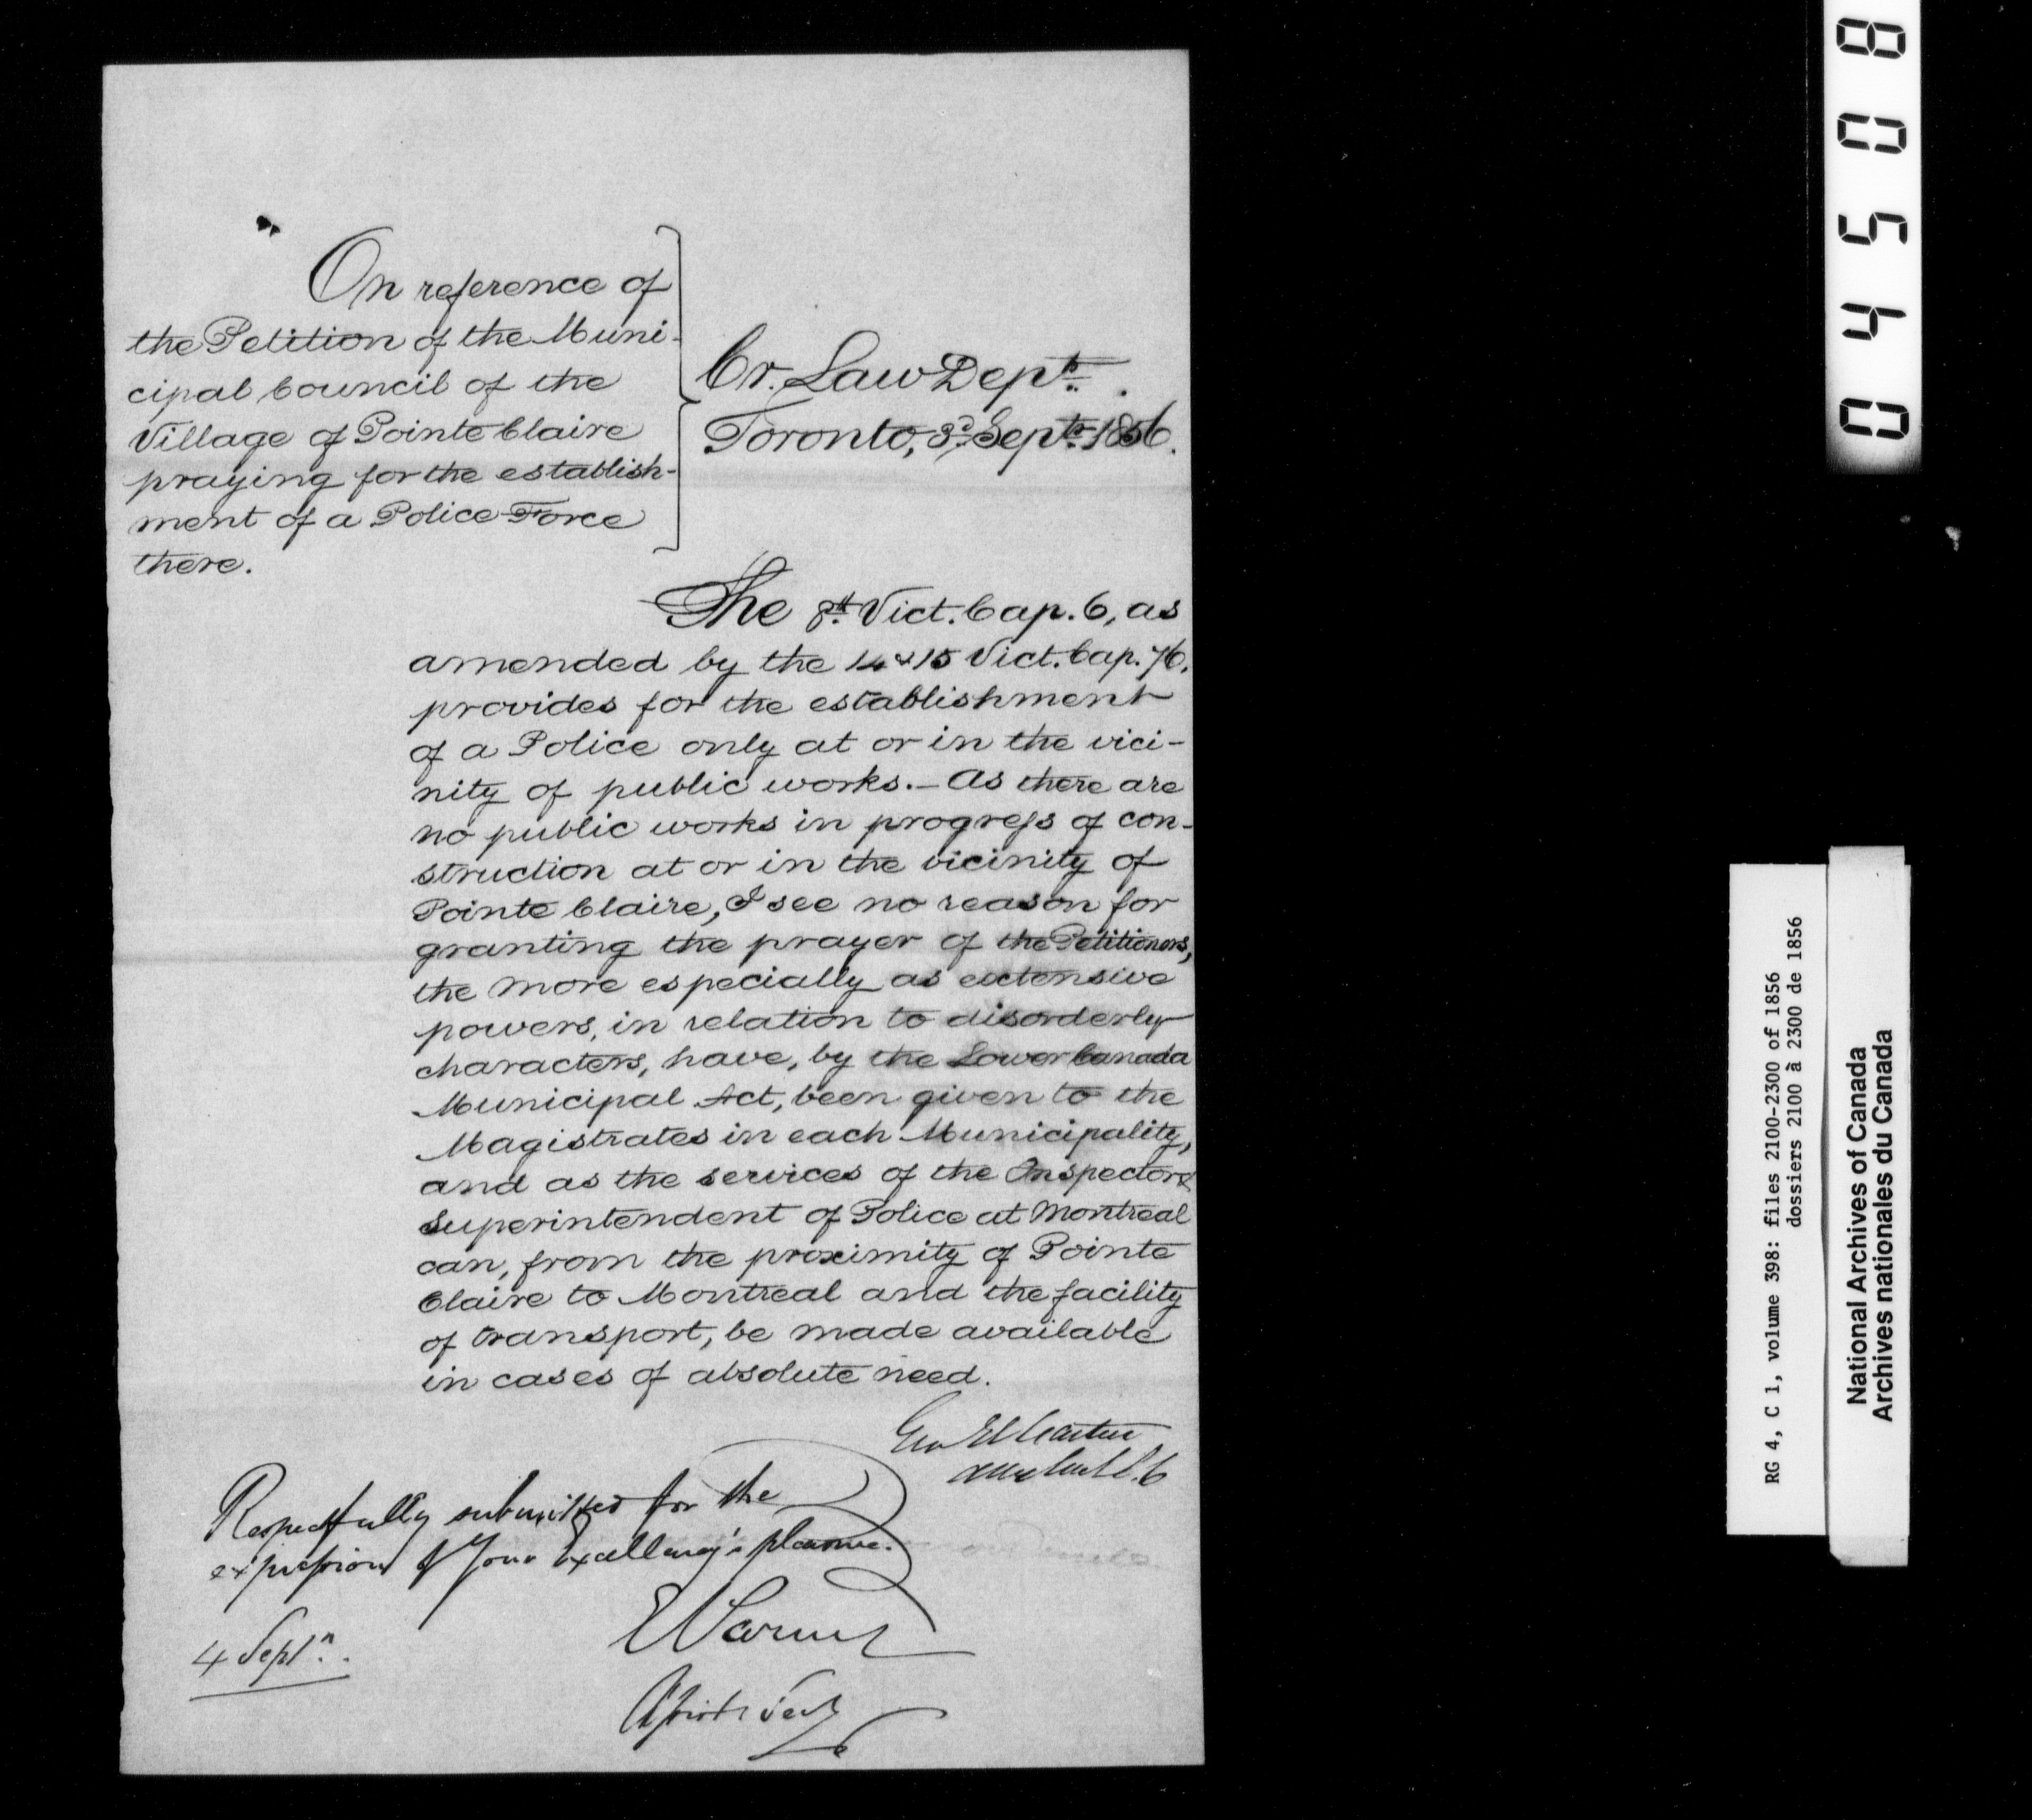 On reference of
the Petition of the Muni-
cipal Council of the
Village of Pointe Claire
praying for the establish-
ment of a Police Force
there.
Cr. Law Dept.
Toronto, 3d. Septr. 1856.
The 8th. Vict. Cap. 6, as
amended by the 14 & 15 Vict. Cap. 76,
provides for the establishment
of a Police only at or in the vici-
nity of public works. — As there are
no public works in progress of con-
struction at or in the vicinity of
Pointe Claire, I see no reason for
granting the prayer of the Petitioners,
the more especially as extensive
powers, in relation to disorderly
characters, have, by the Lower Canada
Municipal Act, been given to the
Magistrates in each Municipality,
and as the services of the Inspector &
Superintendent of Police at Montreal
can, from the proximity of Pointe
Claire to Montreal and the facility
of transport, be made available
in cases of absolute need.
Geo Et Cartier
L.C
Respectfully submitted for the
expression of Your Excellency's pleasure.
E Parent
Assist Secy
4 Septr.
0 4 5 0 8
RG 4, C 1, volume 398: files 2100-2300 of 1856
dossiers 2100 à 2300 de 1856
National Archives of Canada
Archives nationales du Canada